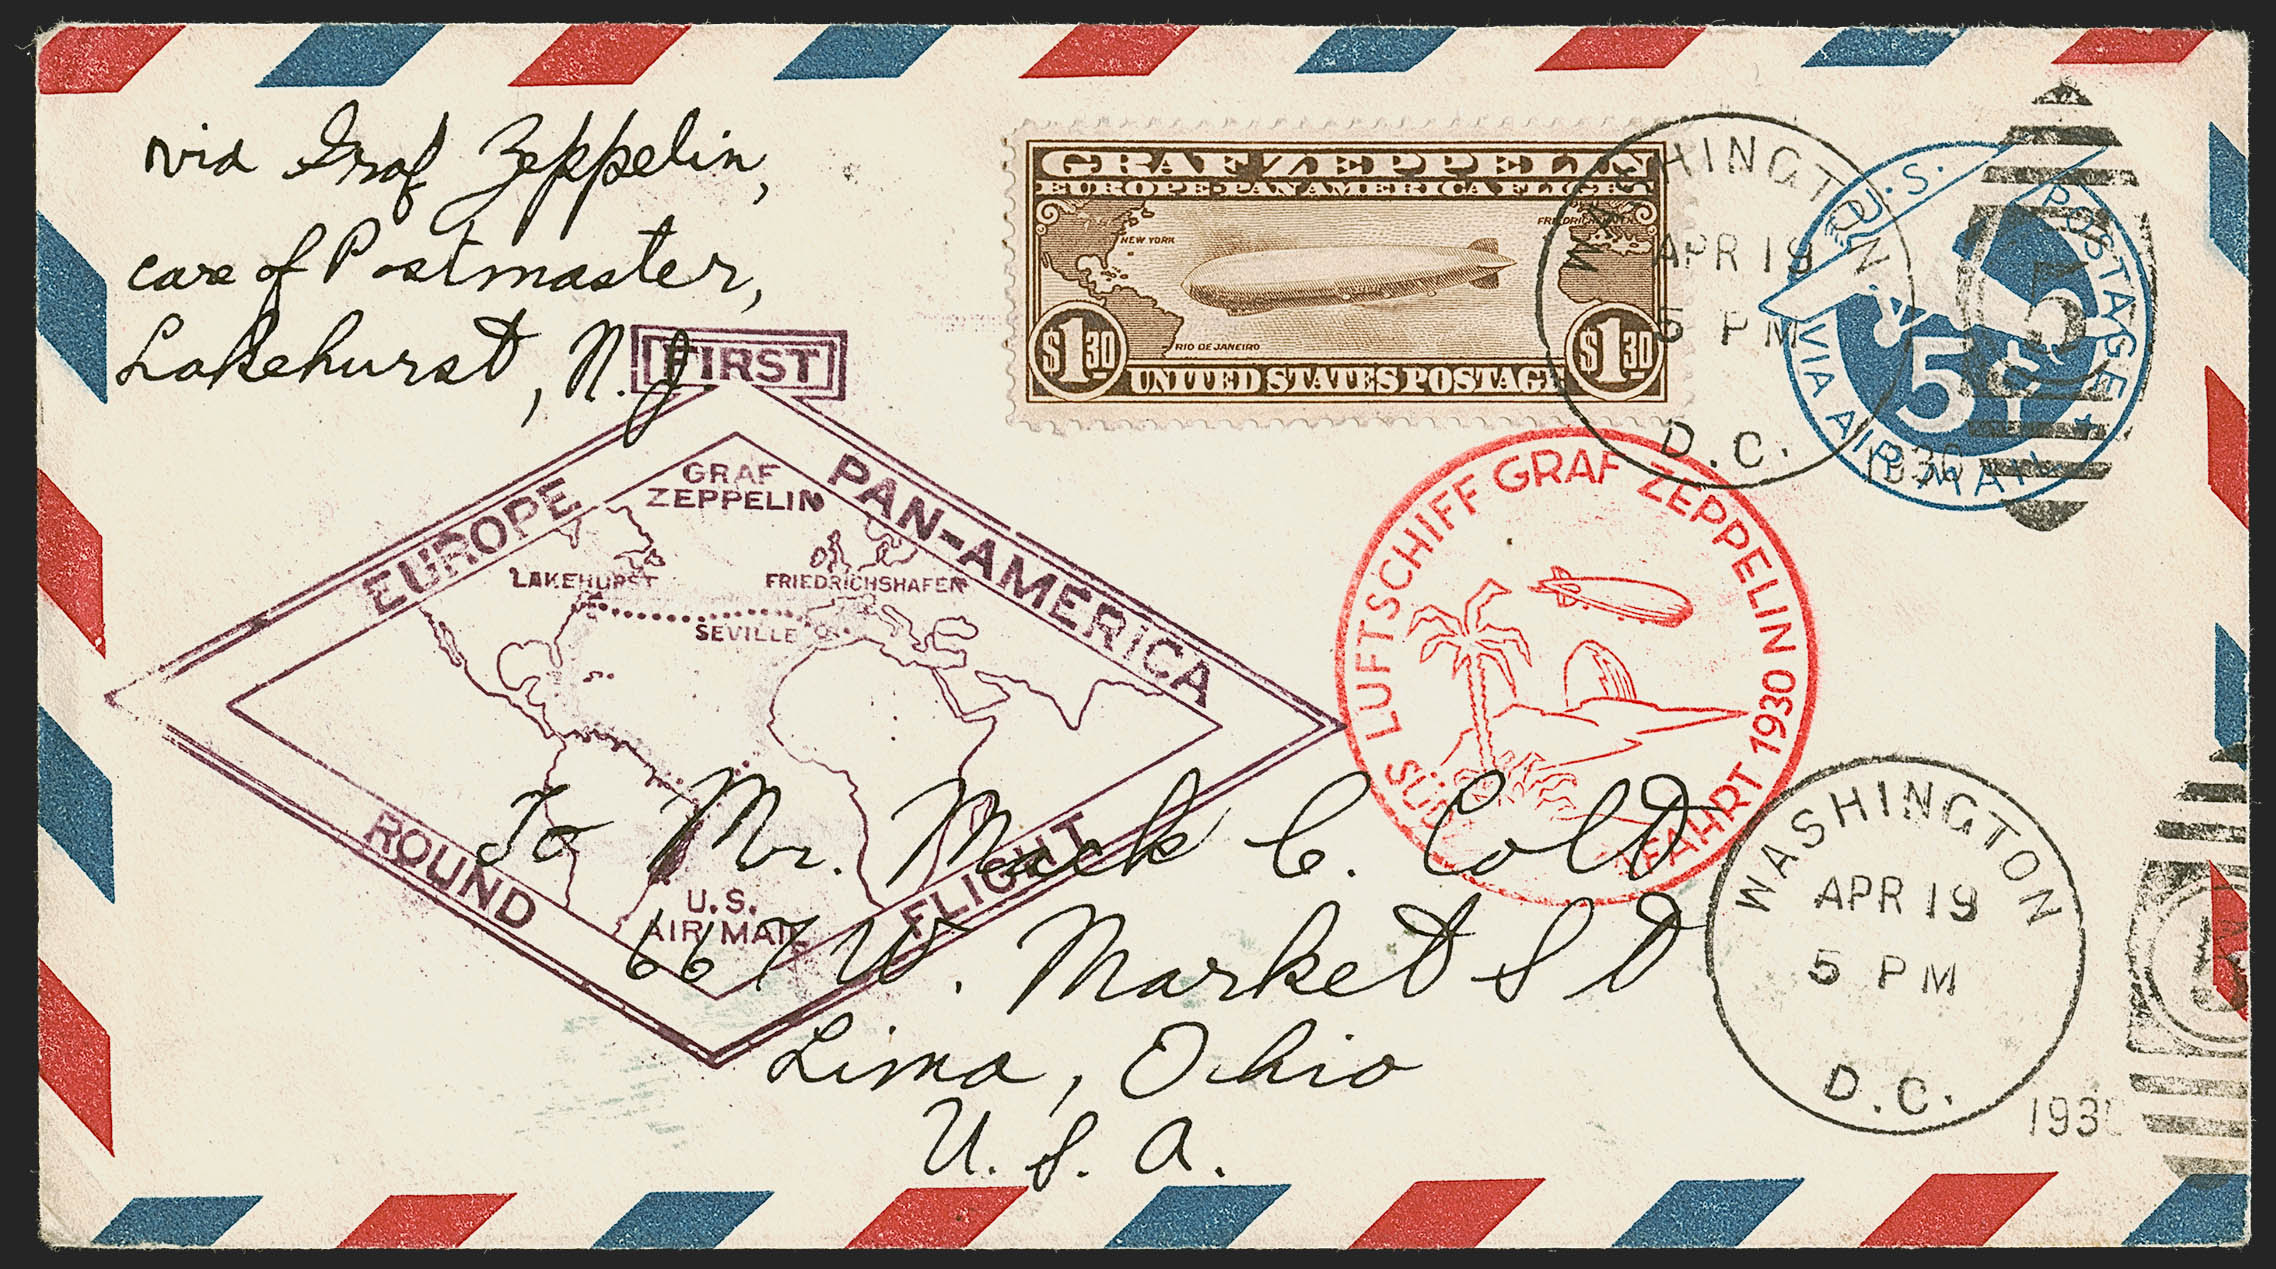 via Graf Zeppelin,
care of Postmaster,
Lakehurst, N.J
GRAF ZEPPELIN
EUROPE-PAN AMERICA FLIGHT
NEW YORK
FRIEDRICHSHAFEN
RIO DE JANEIRO
$1 30
$1 30
UNITED STATES POSTAGE
WASHINGTON
APR 19
5 PM
D.C.
1930
U.S. POSTAGE
VIA AIR MAIL
5¢
5
FIRST
EUROPE PAN-AMERICA
ROUND FLIGHT
GRAF
ZEPPELIN
LAKEHURST
FRIEDRICHSHAFEN
SEVILLE
U.S.
AIR MAIL
LUFTSCHIFF GRAF ZEPPELIN
SÜDAMERIKAFAHRT 1930
To Mr. Mack C. Colt
667 W. Market St
Lima, Ohio
U. S. A.
WASHINGTON
APR 19
5 PM
D.C.
1930